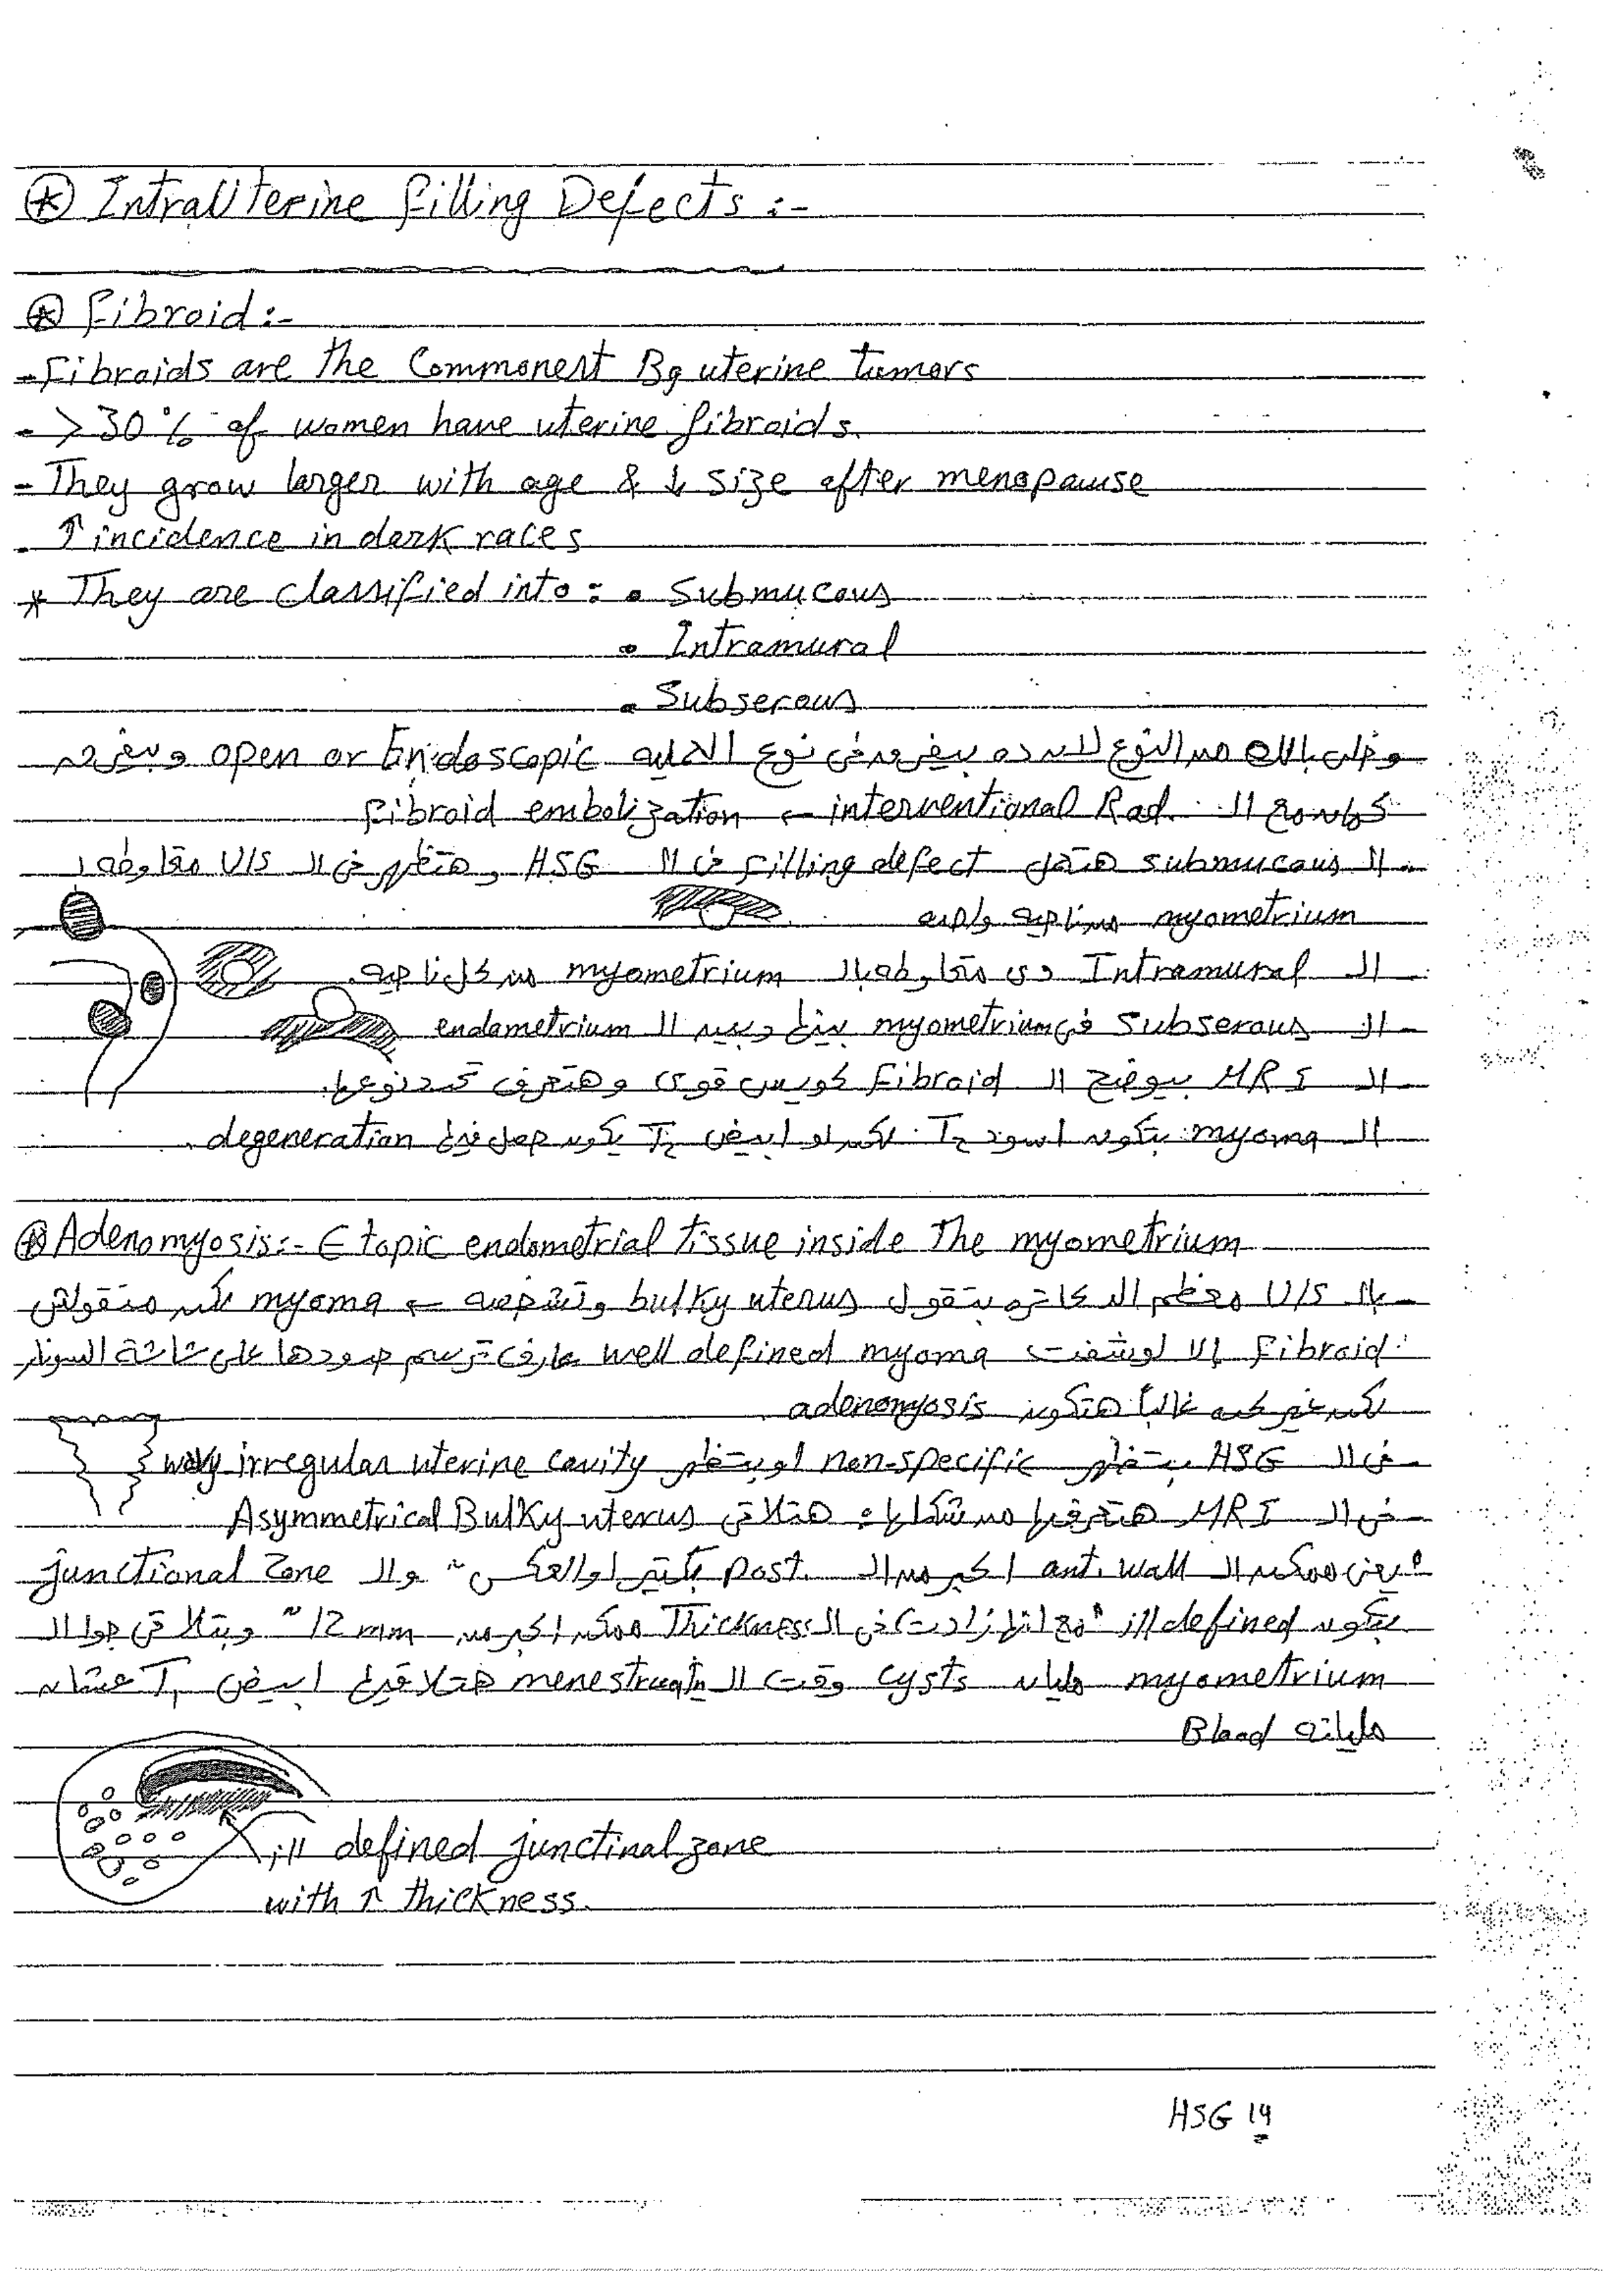 ⊛ IntraUterine filling Defects :-
⊛ fibroid :-
- Fibroids are the Commonest Bg uterine tumors
- > 30 % of women have uterine fibroids.
- They grow larger with age & ↓ size after menopause
- ↑ incidence in dark races
* They are classified into : • Submucous
• Intramural
• Subserous
وخلى بالك من النوع لانه ده بيفرق في نوع العمليه open or Endoscopic وبيفرق
كمان مع الـ interventional Rad. ← fibroid embolization
- الـ submucous هتعمل filling defect في الـ HSG وهتظهر في الـ U/S محاوطه
myometrium من ناحيه واحده
- الـ Intramural دى محاوطه بالـ myometrium من كل ناحيه.
- الـ Subserous في myometrium بينها وبين الـ endometrium
- الـ MRI بيوضح الـ Fibroid كويس قوى وهتعرف تحدد نوعها.
الـ myoma بتكون اسود T2 لكن لو ابيض T2 يكون حصل فيها degeneration.
⊛ Adenomyosis :- Etopic endometrial tissue inside The myometrium
- بالـ U/S معظم الدكاتره بتقول bulky uterus وتشخصه ← myoma لكن متقولش
Fibroid إلا لو شفت well defined myoma عارف ترسم حدودها على شاشة السونار
لكن غير كده غالباً هتكون adenomyosis.
- في الـ HSG بتظهر non-specific او بتظهر wavy irregular uterine cavity
- في الـ MRI هتعرفها من شكلها، هتلاقى Asymmetrical Bulky uterus
"يعنى ممكن الـ ant. wall اكبر من الـ post. بكتير او العكس" والـ junctional Zone
بتكون ill defined "مع انها زادت في الـ Thickness ممكن اكبر من 12 mm" وبتلاقى جوا الـ
myometrium مليان cysts وقت الـ menestruation هتلاقيها ابيض T1 عشان
مليانه Blood
ill defined junctinal zone
with ↑ thickness.
HSG 19